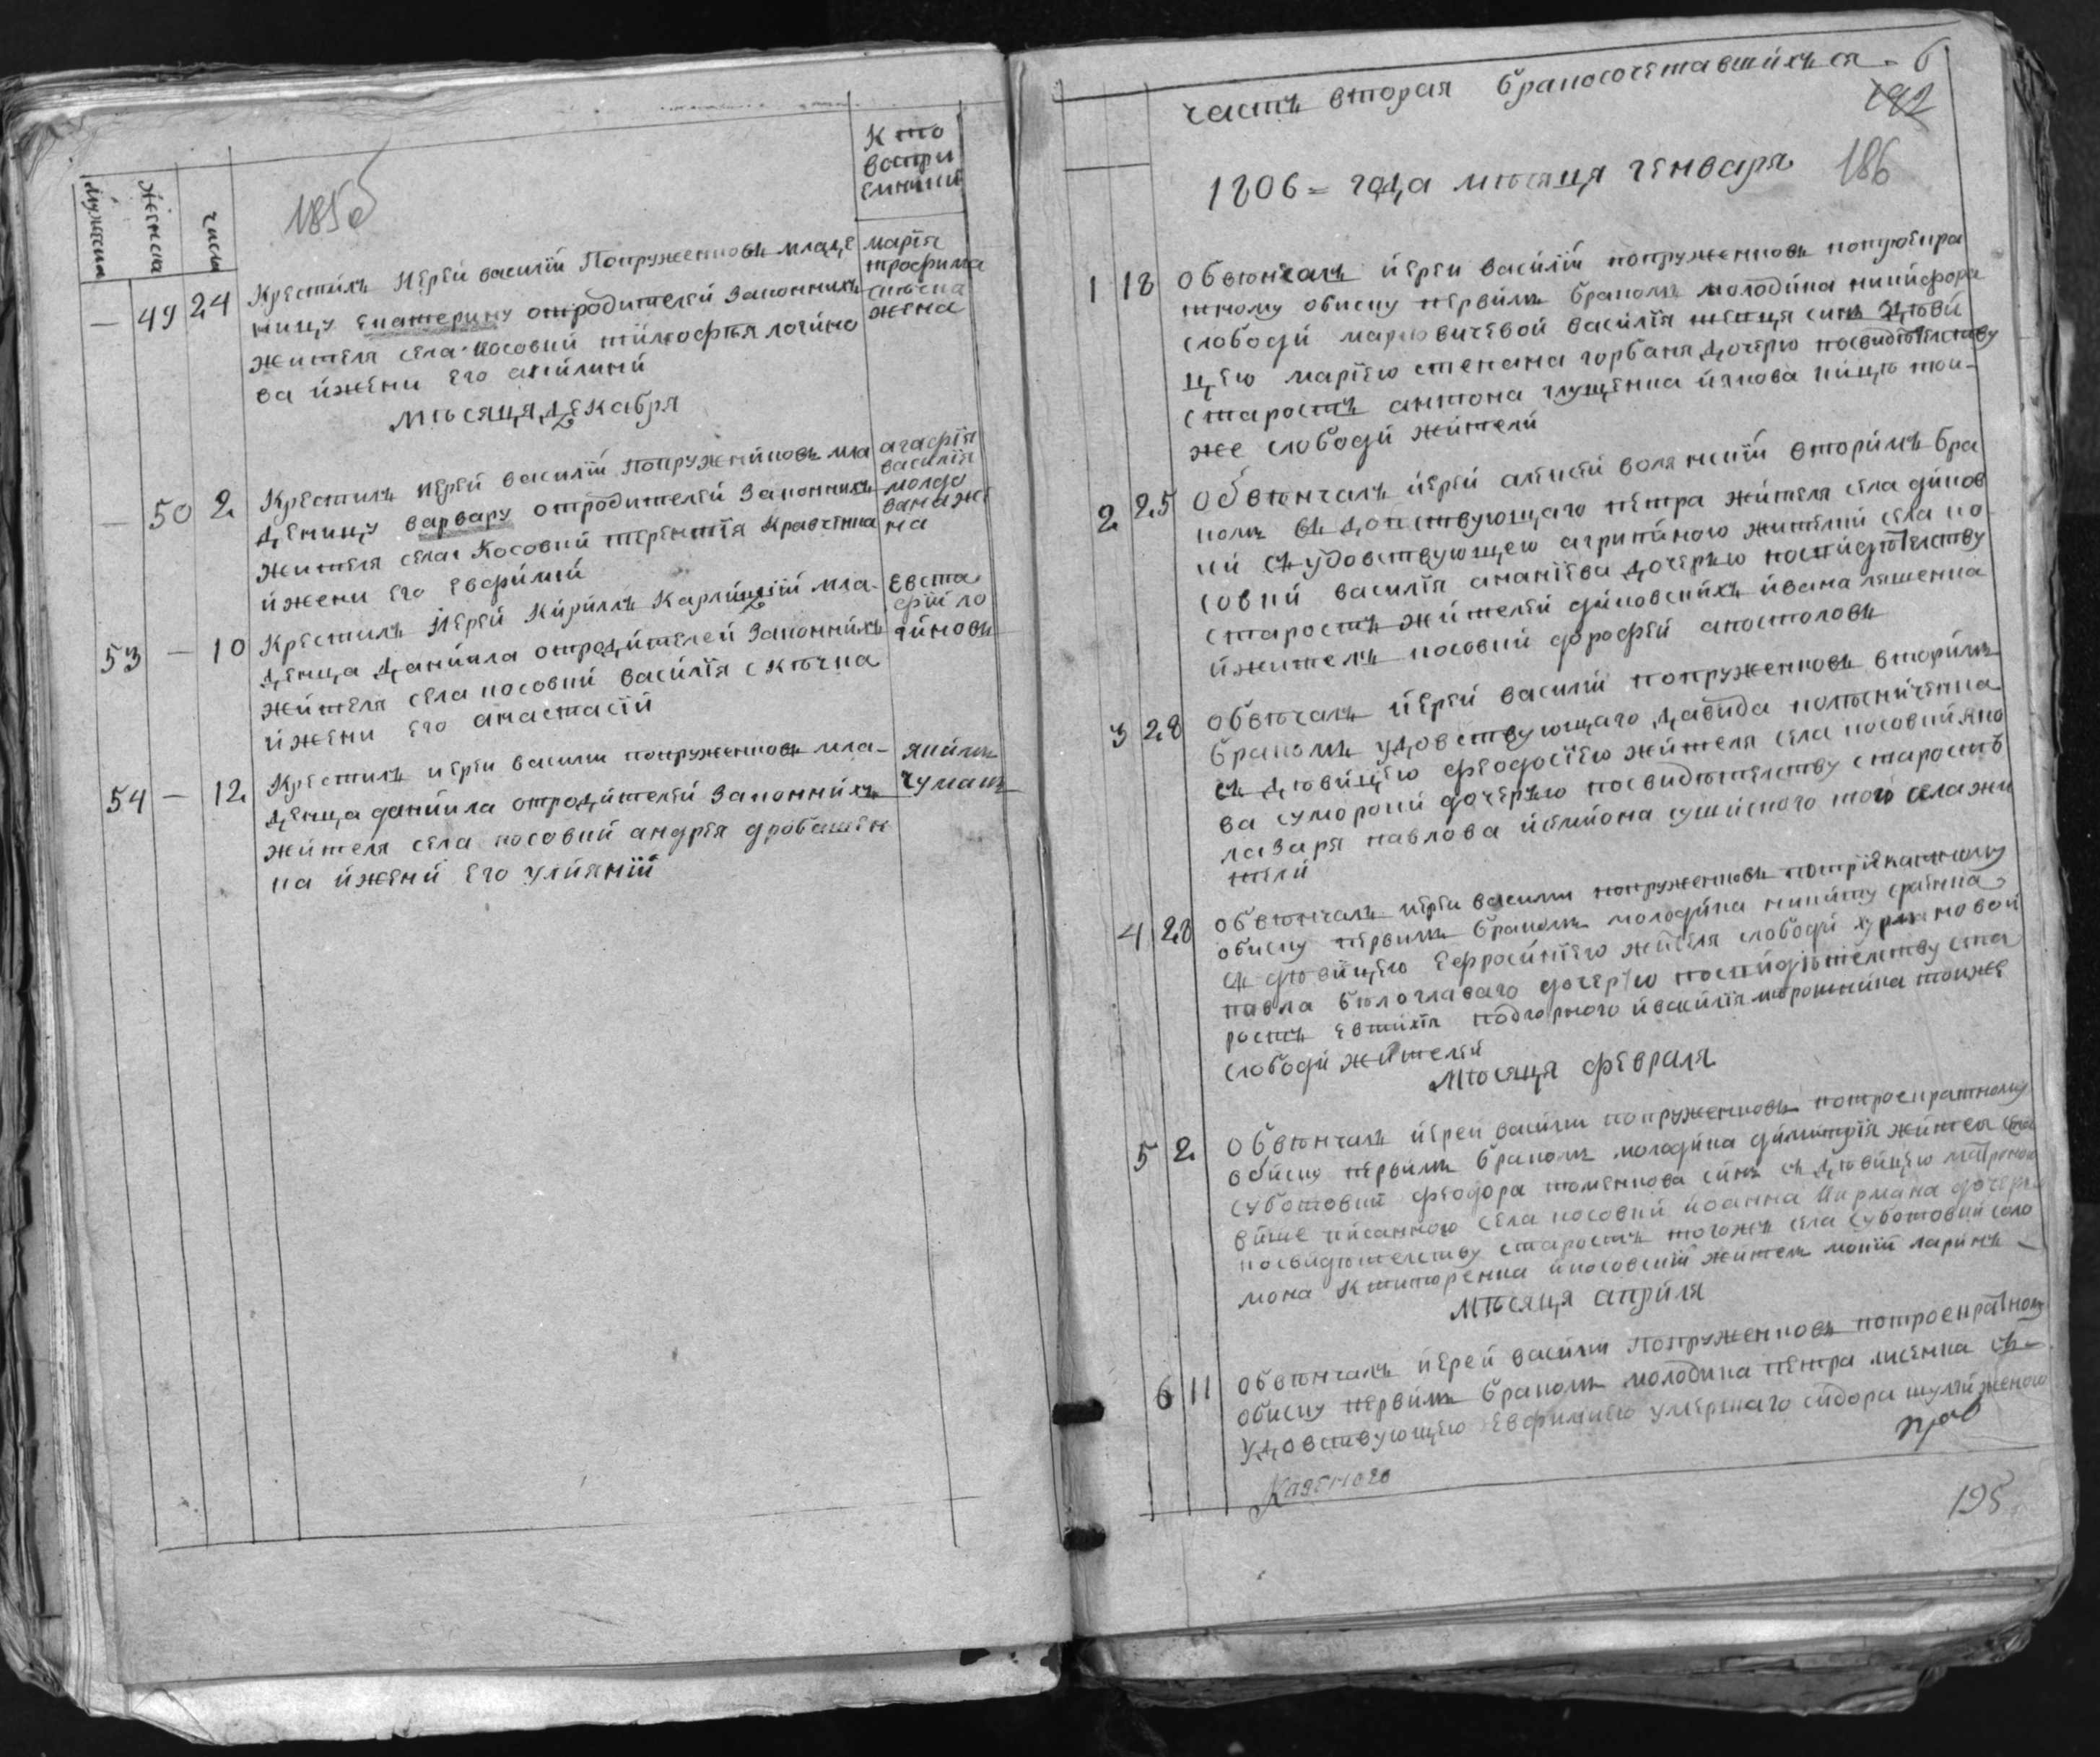 мужеска
женска
числа
185б
Кто
воспри
емники
— 49 24
Крестилъ Иерей василий Попруженковъ младе
ницу екатерину отродителей Законнихъ
жителя села Косовки тимофея логино
ва йжени его акилини
мария
трофима
жена
мѣсяця декабря
— 50 2
Крестилъ иерей василий попруженковъ мла
деницу варвару отродителей Законнихъ
жителя села Косовки терентия Кравченка
йжени его евфимии
агафия
василия
молдо
вана же
на
53 — 10
Крестилъ Иерей Кириллъ мла-
денца даниила отродителей Законнихъ
жителя села косовки василия скочка
йжени его анастасии
Евста
фий ло
гиновъ
54 — 12
Крестилъ иереи василии попруженковъ мла-
денца даниила отродителей Законнихъ
жителя села косовки андрея дробашен
ка йжени его улияний
якимъ
чумакъ
часть вторая бракосочетавшихъ ся - 6
182
1806 = года мѣсяця генваря 186
1 18
обвѣнчалъ иереи василий попруженковъ
тному обиску первимъ бракомъ молодика никифора
слободи марковичевой василия сина здѣви
цею мариею степана горбаня дочерю посвидѣтелству
старостъ антона глущенка
же слободи жители
2 25
обвѣнчалъ иерей алексей волянский вторимъ бра
комъ вдовствующаго петра жителя села
ки съудовствующею агрипиною жителки села ко
совки василия ананиева дочерью посвидѣтелству
старостъ жителей ивана ляшенка
йжитель косовки дорофей апостоловъ
3 28
обвѣнчалъ иерей василий попруженковъ вторимъ
бракомъ удовствующаго давида колѣсниченка
съ дѣвицею феодосиею жителя села косовки яко
ва суморопи дочерью посвидѣтелству старостъ
лазаря павлова исимиона сушиского той села жи
тели
4 28
обвѣнчалъ иереи василии попруженковъ
обиску первимъ бракомъ молодика никиту
съ дѣвицею ефросиниею жителя слободи
павла бѣлоглаваго дочерью посвидѣтелству ста
ростъ евтихия подгорного йвасилия мирошника тоиже
слободи жителей
мѣсяця февраля
5 2
обвѣнчалъ иереи василии попруженковъ потроекратному
обиску первимъ бракомъ молодика димитрия жителя села
суботовки феодора томенкова синъ съ дѣвицею матроною
више писанного села косовки иоанна кирмана дочерью
посвидѣтелству старостъ тогожъ села суботовки соло
мона Ктиторенка йкосовский житель мокий ларинъ
мѣсяця априля
6 11
обвѣнчалъ иерей василии Попруженковъ потроекратному
обиску первимъ бракомъ молодика петра лисенка съ-
удовствующею евфимиею умершаго сидора женою
Казеного
195